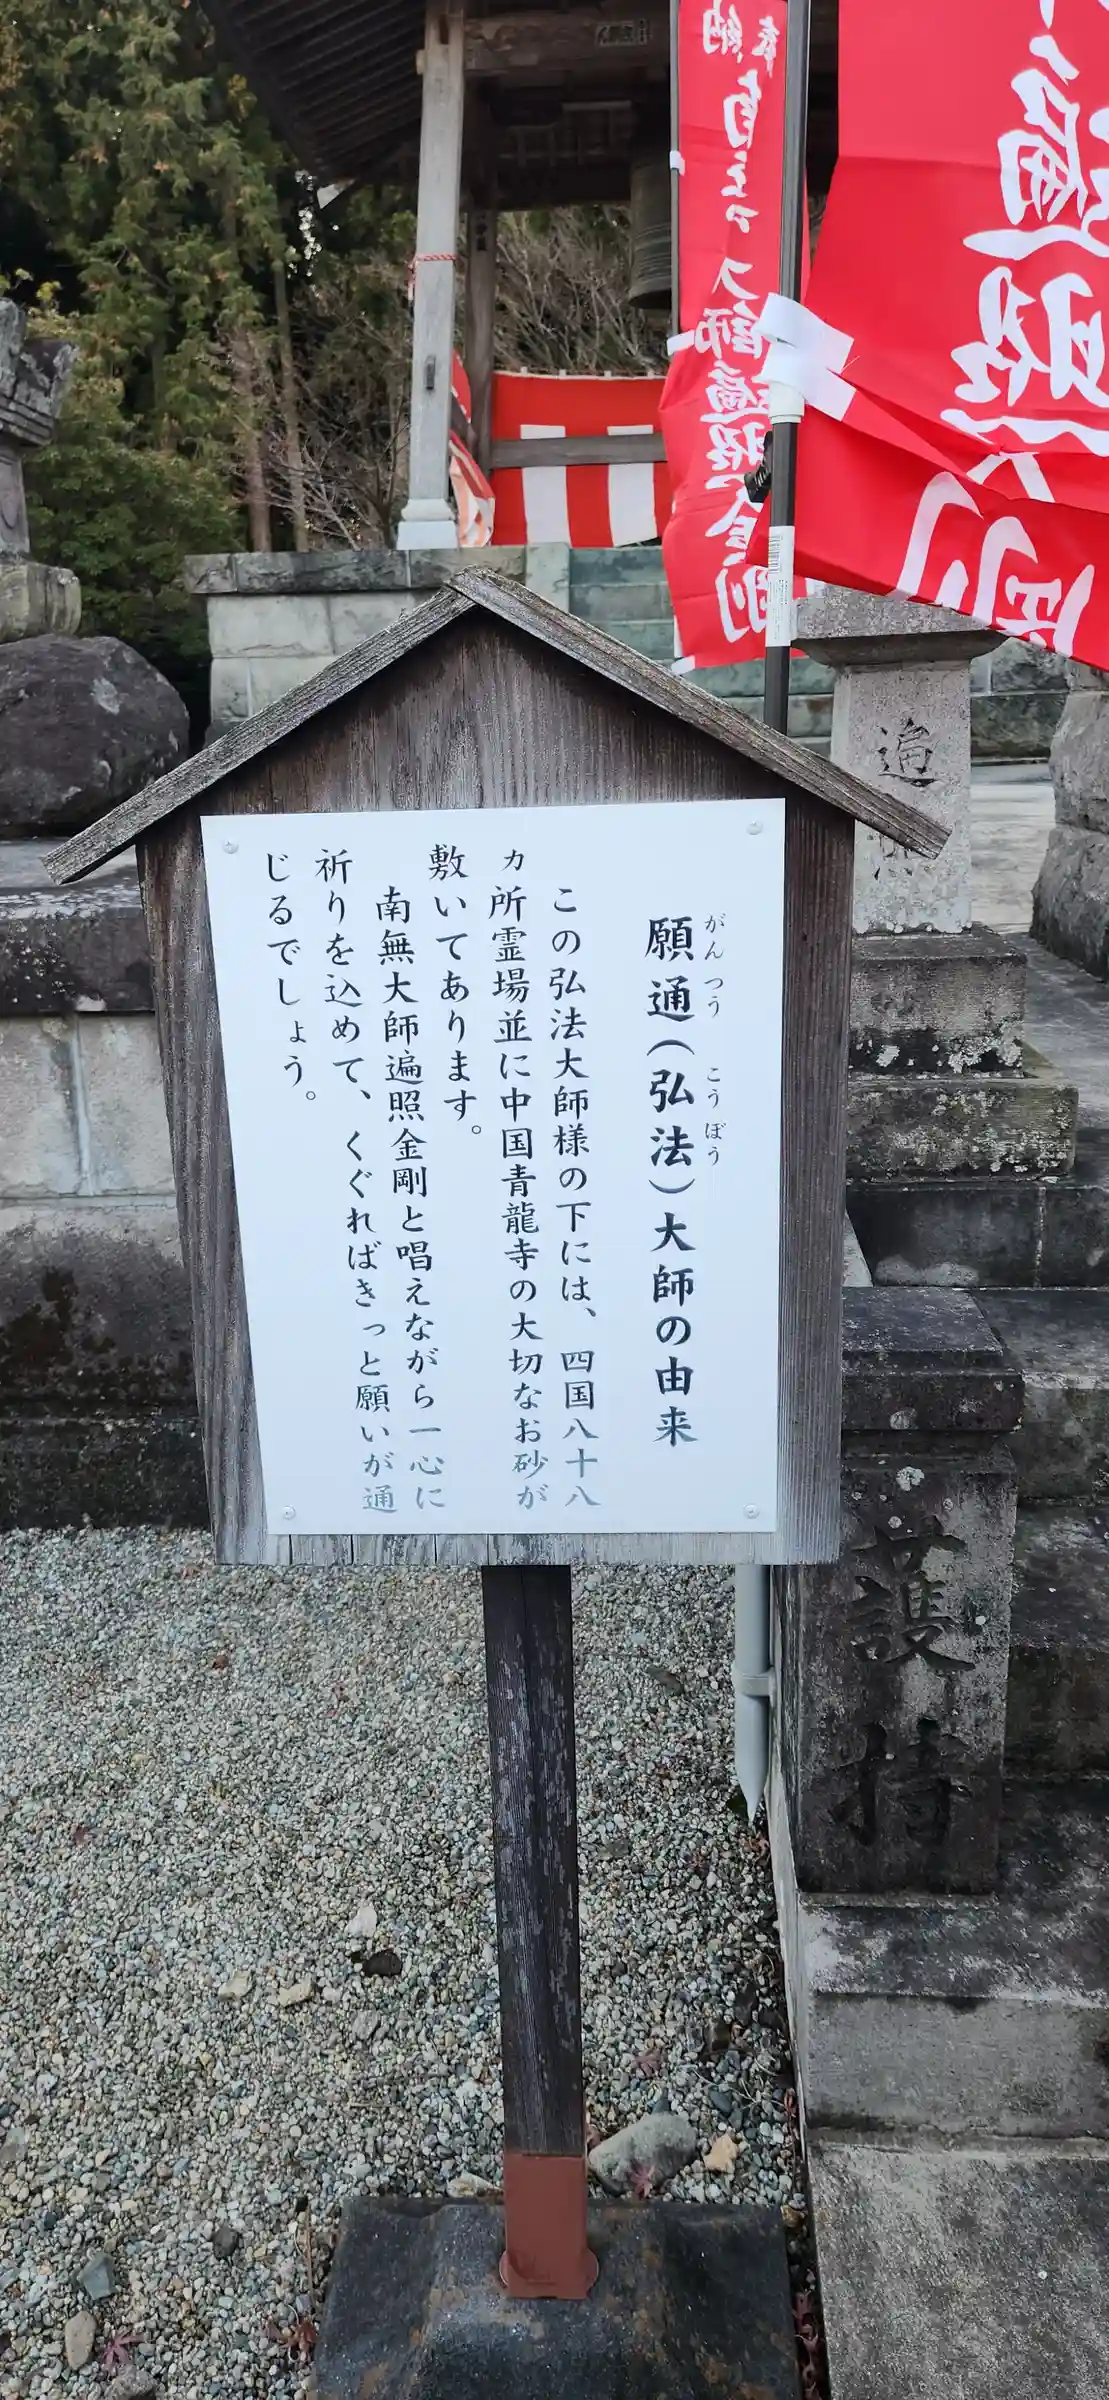 願通(弘法)大師の由来
がんつう
こうぼう
この弘法大師様の下には、四国八十八
ヵ所霊場並に中国青龍寺の大切なお砂が
敷いてあります。
南無大師遍照金剛と唱えながら一心に
祈りを込めて、くぐればきっと願いが通
じるでしょう。
護持
遍